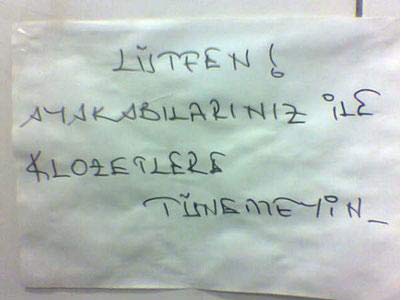 LÜTFEN!
AYAKABILARINIZ İLE
KLOZETLERE
TÜNEMEYİN_